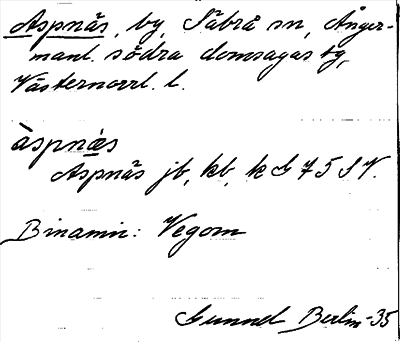 Aspnäs, by, Säbrå sn, Ånger-
manl. södra domsagas tg,
Västernorrl. l.
àspnæs
Aspnäs jb, kb, k G 75 S V.
Binamn: Vegom
Gunnel Berlin -35